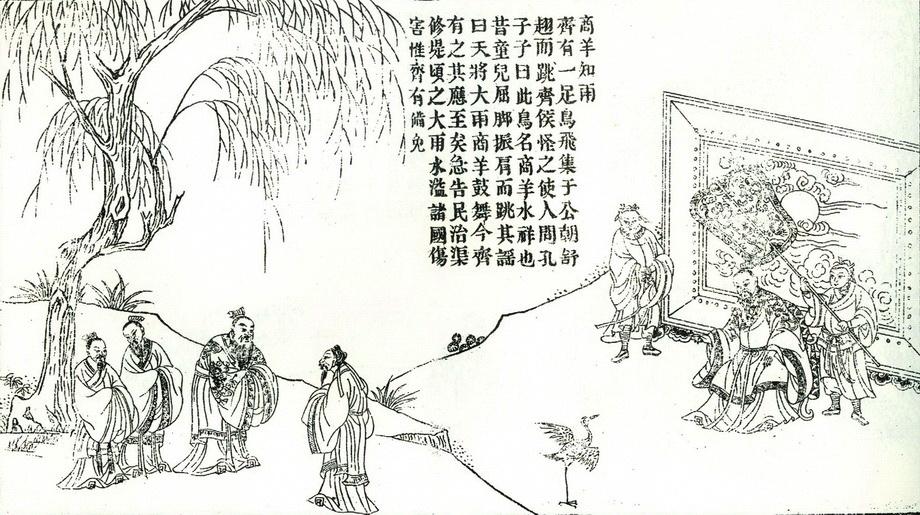 商羊知雨
齊有一足鳥飛集于公朝舒
趐而跳齊侯怪之使人問孔
子子曰此鳥名商羊水祥也
昔童兒屈脚振肩而跳其謡
曰天將大雨商羊鼓舞今齊
有之其應至矣急告民治渠
修堤頃之大雨水溢諸國傷
害惟齊有備免